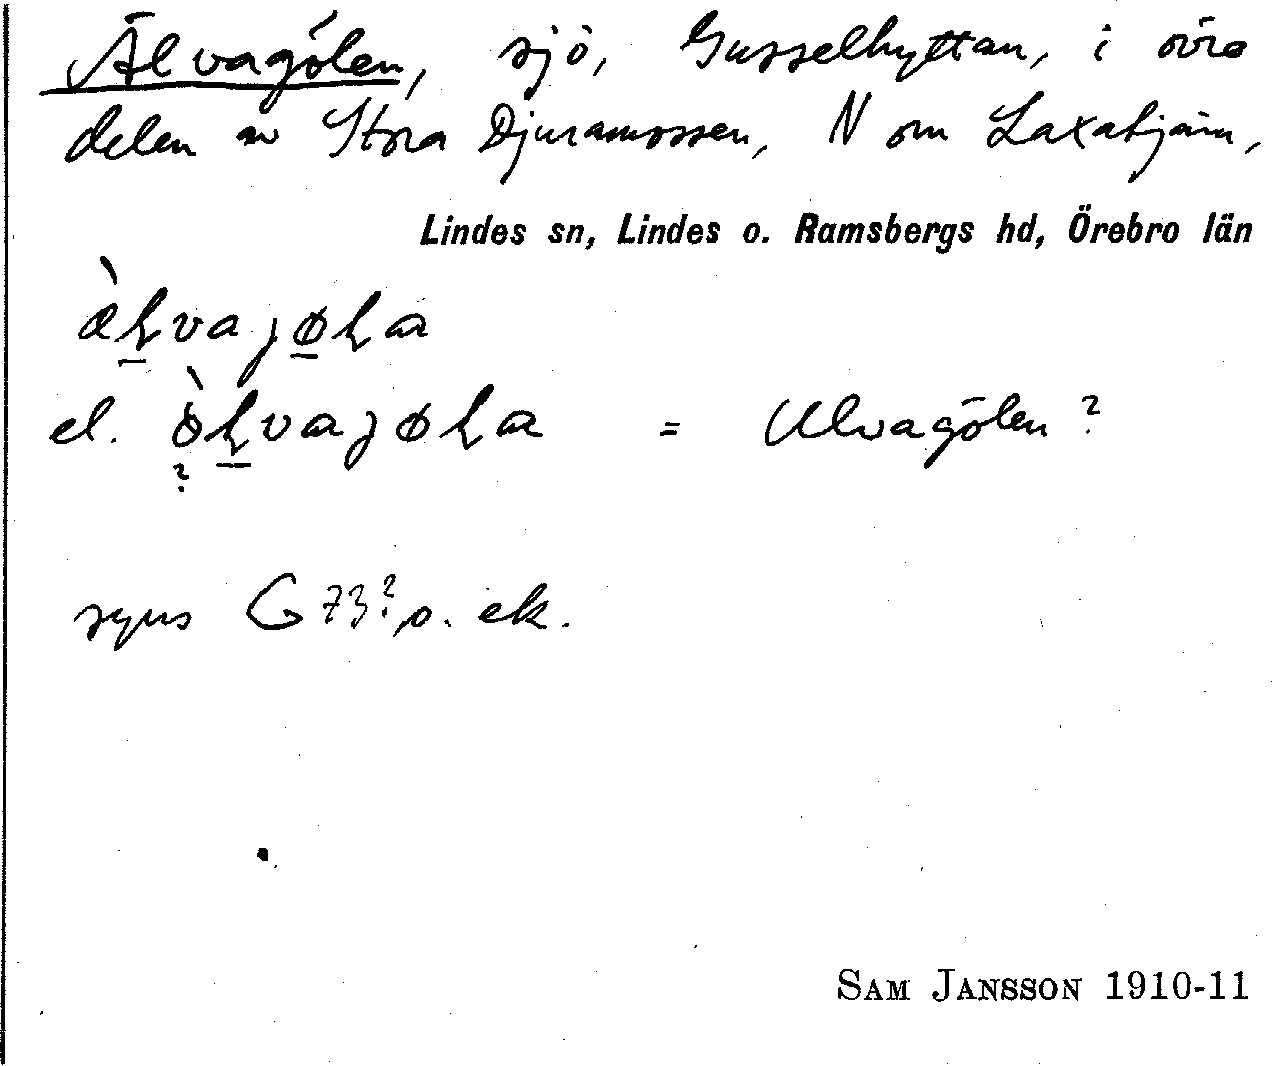 Älvagölen, sjö, Gusselhyttan, i övre
delen av Stora Djuramossen, N om Laxatjärn,
Lindes sn, Lindes o. Ramsbergs hd, Örebro län
æ̀ɬvaȷøɬa
el. ὸɬvaȷøɬa = Ulvagölen?
?
syns G 73? o. ek.
SAM JANSSON 1910-11